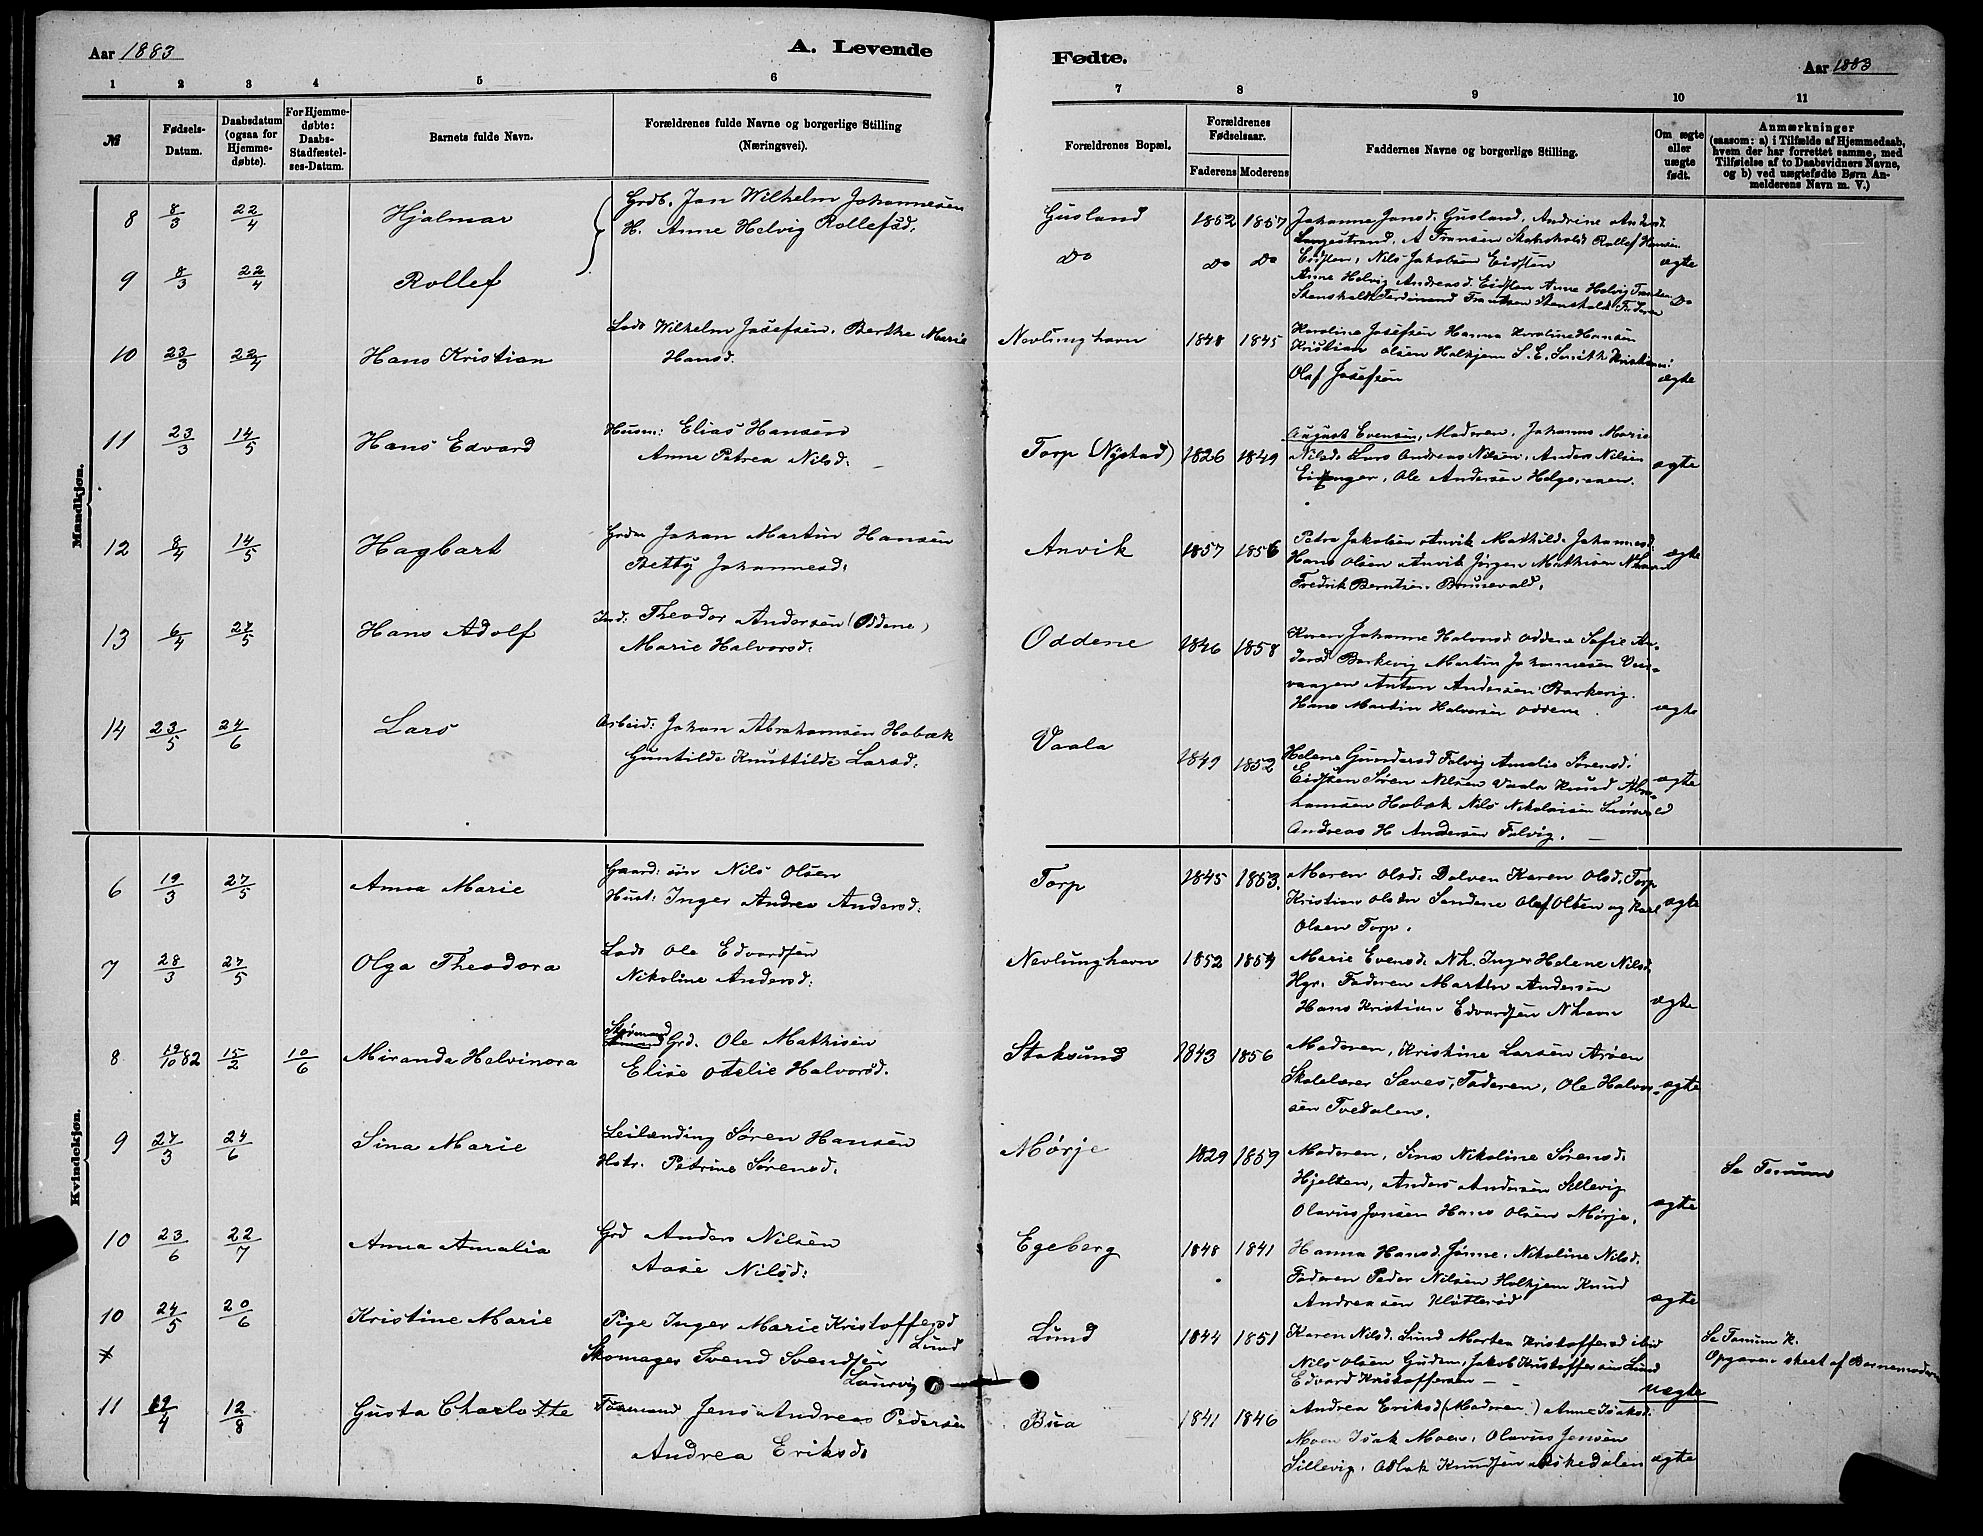 Aar 1883
A. Levende
Fødte.
Aar 1883
1 2 3 4 5 6 7 8 9 10 11
№
Fødsels-Datum.
Daabsdatum (ogsaa for Hjemmedøbte).
For Hjemmedøbte: Daabs-Stadfæstelses-Datum.
Barnets fulde Navn.
Forældrenes fulde Navne og borgerlige Stilling
(Næringsvei).
Forældrenes Bopæl.
Forældrenes Fødselsaar.
Faderens Moderens
Faddernes Navne og borgerlige Stilling.
Om ægte eller uægte født.
Anmærkninger
(saasom: a) i Tilfælde af Hjemmedaab,
hvem der har forrettet samme, med
Tilføielse af to Daabsvidners Navne,
og b) ved uægtefødte Børn An-
melderens Navn m. V.)
Mandkjøn.
8 8/3 22/4 Hjalmar Grdb. Jan Wilhelm Johannesen
H. Anne Helvig Rollefsd.
Gusland 1852 1857 Johanne Jonsd. Gusland, Andrine Andersd.
Langestrand, A Fransen Stenshold Rollef Hansen
Eidsten, Nils Jakobsen Eidsten ægte
9 8/3 22/4 Rollef
Do Do Do Anne Helvig Andreasd. Eidsten Anne Helvig Frantsen
Stensholdt Ferdinand Frantsen Stensholdt Faderen Do
10 23/3 22/4 Hans Kristian Lods Wilhelm Josefsen, Berthe Marie
Hansd.
Nevlunghavn 1848 1845 Karoline Josefsen Hanna Karoline Hansen
Kristian Olsen Holkjem S. E. Smith
Olaf Josefsen ægte
11 23/3 14/5 Hans Edvard Husm: Elias Hansen
Anne Petrea Nilsd:
Torp (Nystad) 1826 1849 August Evensen, Moderen, Johanne Marie
Nilsd. Lars Andreas Nilsen, Anders Nilsen
Eidanger, Ole Andersen Helgeroaen. ægte
12 8/4 14/5 Hagbart Grdm Johan Martin Hansen
Betty Johannesd:
Anvik 1857 1856 Petra Jakobsen Anvik Mathilde Johannesd:
Hans Olsen Anvik Jørgen Mathisen Nhavn
Fredrik Berntsen Brunevald. ægte
13 6/4 27/5 Hans Adolf Ind: Theodor Andersen (Oddene)
Marie Halvorsd:
Oddene 1846 1858 Karen Johanne Halvorsd. Oddene Sofie An-
dersd Barkevig Martin Johannesen
Anton Andersen Barkevig.
Hans Martin Halvorsen Oddene. ægte
14 23/5 24/6 Lars Arbeid: Johan Abrahamsen Hobæk
Guntilde Knuttilde Larsd.
Vaala 1849 1852 Helene Gundersd Folvig Amalie Sørensd:
Eidsten Søren Nilsen Vaala Knud Abra-
hamsen Hobæk Nils Nikolaisen
Andreas H Andersen Folvig. ægte
Kvindekjøn.
6 19/3 27/5 Anna Marie Gaard: søn Nils Olsen
Hust: Inger Andrea Andersd:
Torp 1845 1853. Maren Olsd: Dolven Karen Olsd. Torp
Kristian Olsen Sandene Olaf Olsen og Karl
Olsen Torp. ægte
7 28/3 27/5 Olga Theodora Lods Ole Edvardsen
Nikoline Andersd:
Nevlunghavn 1852 1854 Marie Evensd. Nh. Inger Helene Nilsd.
Hgr. Faderen Martin Andersen
Hans Kristian Edvardsen Nhavn ægte
8 19/10 82 15/2 10/6 Miranda Helvinora Styrmand
Grd. Ole Mathisen
Elise Otelie Halvorsd.
Staksund 1843 1856 Moderen, Kristine Larsen Arøen
Skolelærer Sæves, Faderen, Ole Halvor-
sen Tvedalen. ægte
9 27/3 24/6 Sina Marie Leilænding Søren Hansen
Hstr. Petrine Sørensd.
Mørje 1829 1859 Moderen, Sina Nikoline Sørensd.
Hjelten, Anders Andersen Sillevig
Olavus Jonsen Hans Olsen Mørje. ægte Se Tanum
10 23/6 22/7 Anna Amalia Grd Anders Nilsen
Aase Nilsd:
Egeberg 1848 1841 Hanna Hansd. Jønne, Nikoline Nilsd.
Faderen Peder Nilsen Holkjem Knud
Andreasen Kløtterød ægte
10 24/5 20/6 Kristine Marie Pige Inger Marie Kristoffersd
Lund
Skomager Svend Svendsen
Laurvig
Lund 1844 1851 Karen Nilsd. Lund Morten Kristoffersd ibid
Nils Olsen Gudem, Jakob Kristoffersen Lund
Edvard Kristoffersen uægte Se Tanum K.
Opgaven skeet af Barnemoderen
11 19/4 12/8 Gusta Charlotte Tømmermand Jens Andreas Pedersen
Andrea Eriksd.
Bua 1841 1846 Andrea Eriksd (Moderen) Anne Isaksd.
Moen Isak Moen, Olavus Jensen
Sillevig, Oslak Knudsen Askedalen ægte